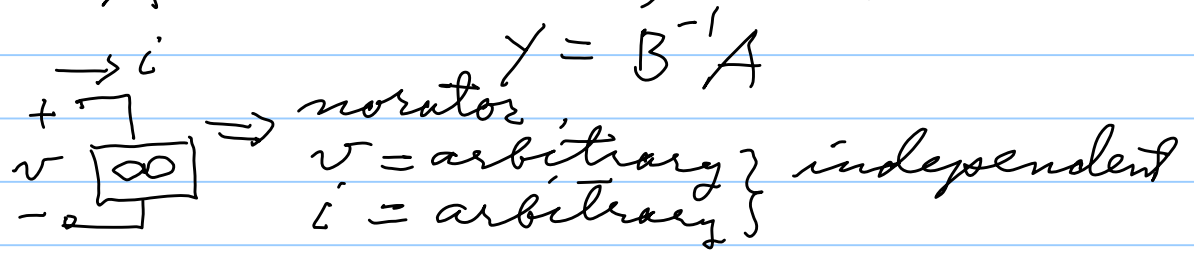 Y = B⁻¹A
→ i
+ ⇒ norator,
v ∞ v = arbitrary } independent
- i = arbitrary }